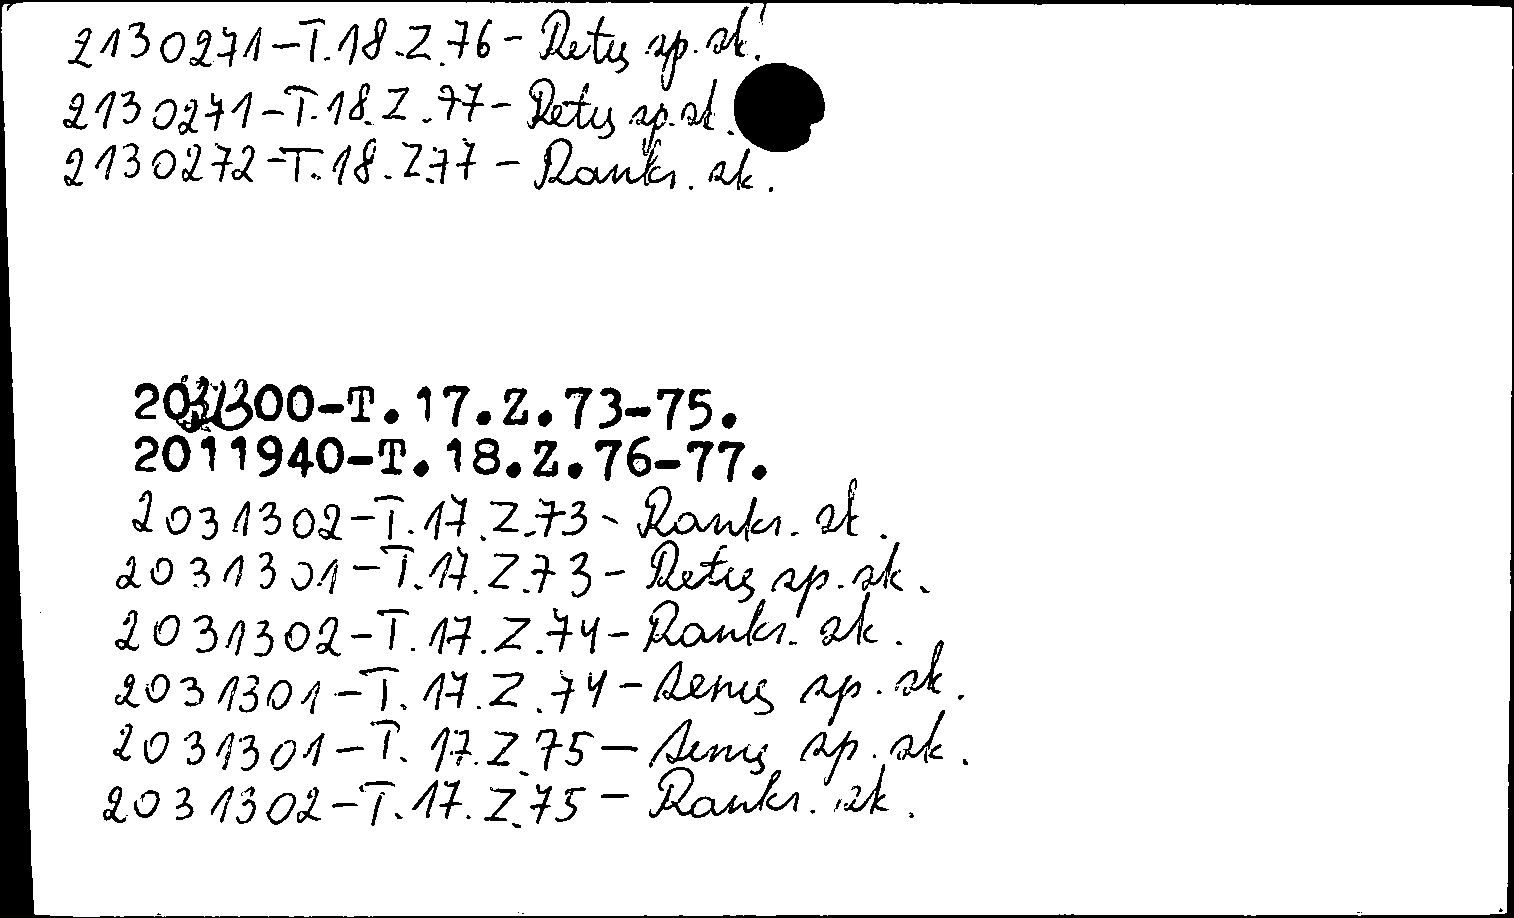 2130271-T.18.Z.76- Retų sp.sk.
2130271-T.18.Z.77- Retų sp.sk.
2130272-T.18.Z.77 - Rankr. sk.
2031300-T.17.Z.73-75.
2011940-T.18.Z.76-77.
2031302-T.17.Z.73- Rankr. sk.
2031301-T.17.Z.73- Retų sp.sk.
2031302-T.17.Z.74- Rankr. sk.
2031301-T.17.Z.74- Senų sp.sk.
2031301-T.17.Z.75- Senų sp.sk.
2031302-T.17.Z.75- Rankr. sk.